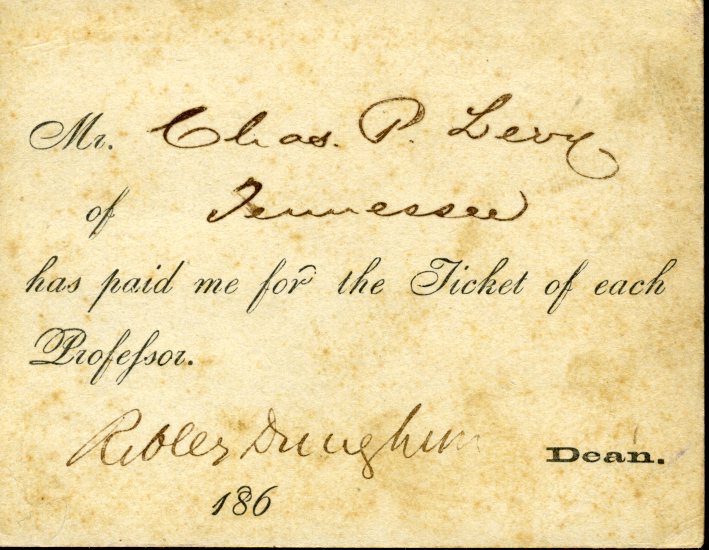 Mr. Chas. P. Levy
of Tennessee
has paid me for the Ticket of each
Profeſsor.
Robley Dunglison Dean.
186